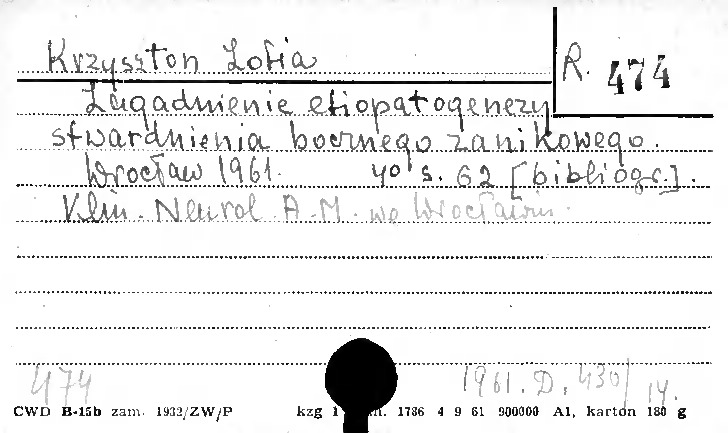 Krzyszton Zofia
R. 474
Zagadnienie etiopatogenezy
stwardnienia bocznego zanikowego.
Wrocław 1961. 40 s. 62 [bibliogr.].
Klin. Neurol. A.M. we Wrocławiu.
474
1961. D. 430/14.
CWD B-15b zam. 1932/ZW/P kzg 1786 4 9 61 900000 A1, karton 180 g